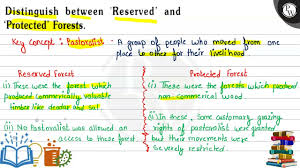 Distinguish between 'Reserved' and
'Protected' Forests.
Key Concept :- Pastoralist - A group of people who moved from one
place to other for their livelihood
Reserved Forest
(i) These were the forest which
produced commercially valuable
timber like deodar and sal.
(ii) No Pastoralist was allowed an
access to these forest
Protected Forest
(i) These were the forests which produced
non-commercial wood.
(ii) In these, some customary grazing
rights of pastoralist were granted
but their movements were
severely restricted.